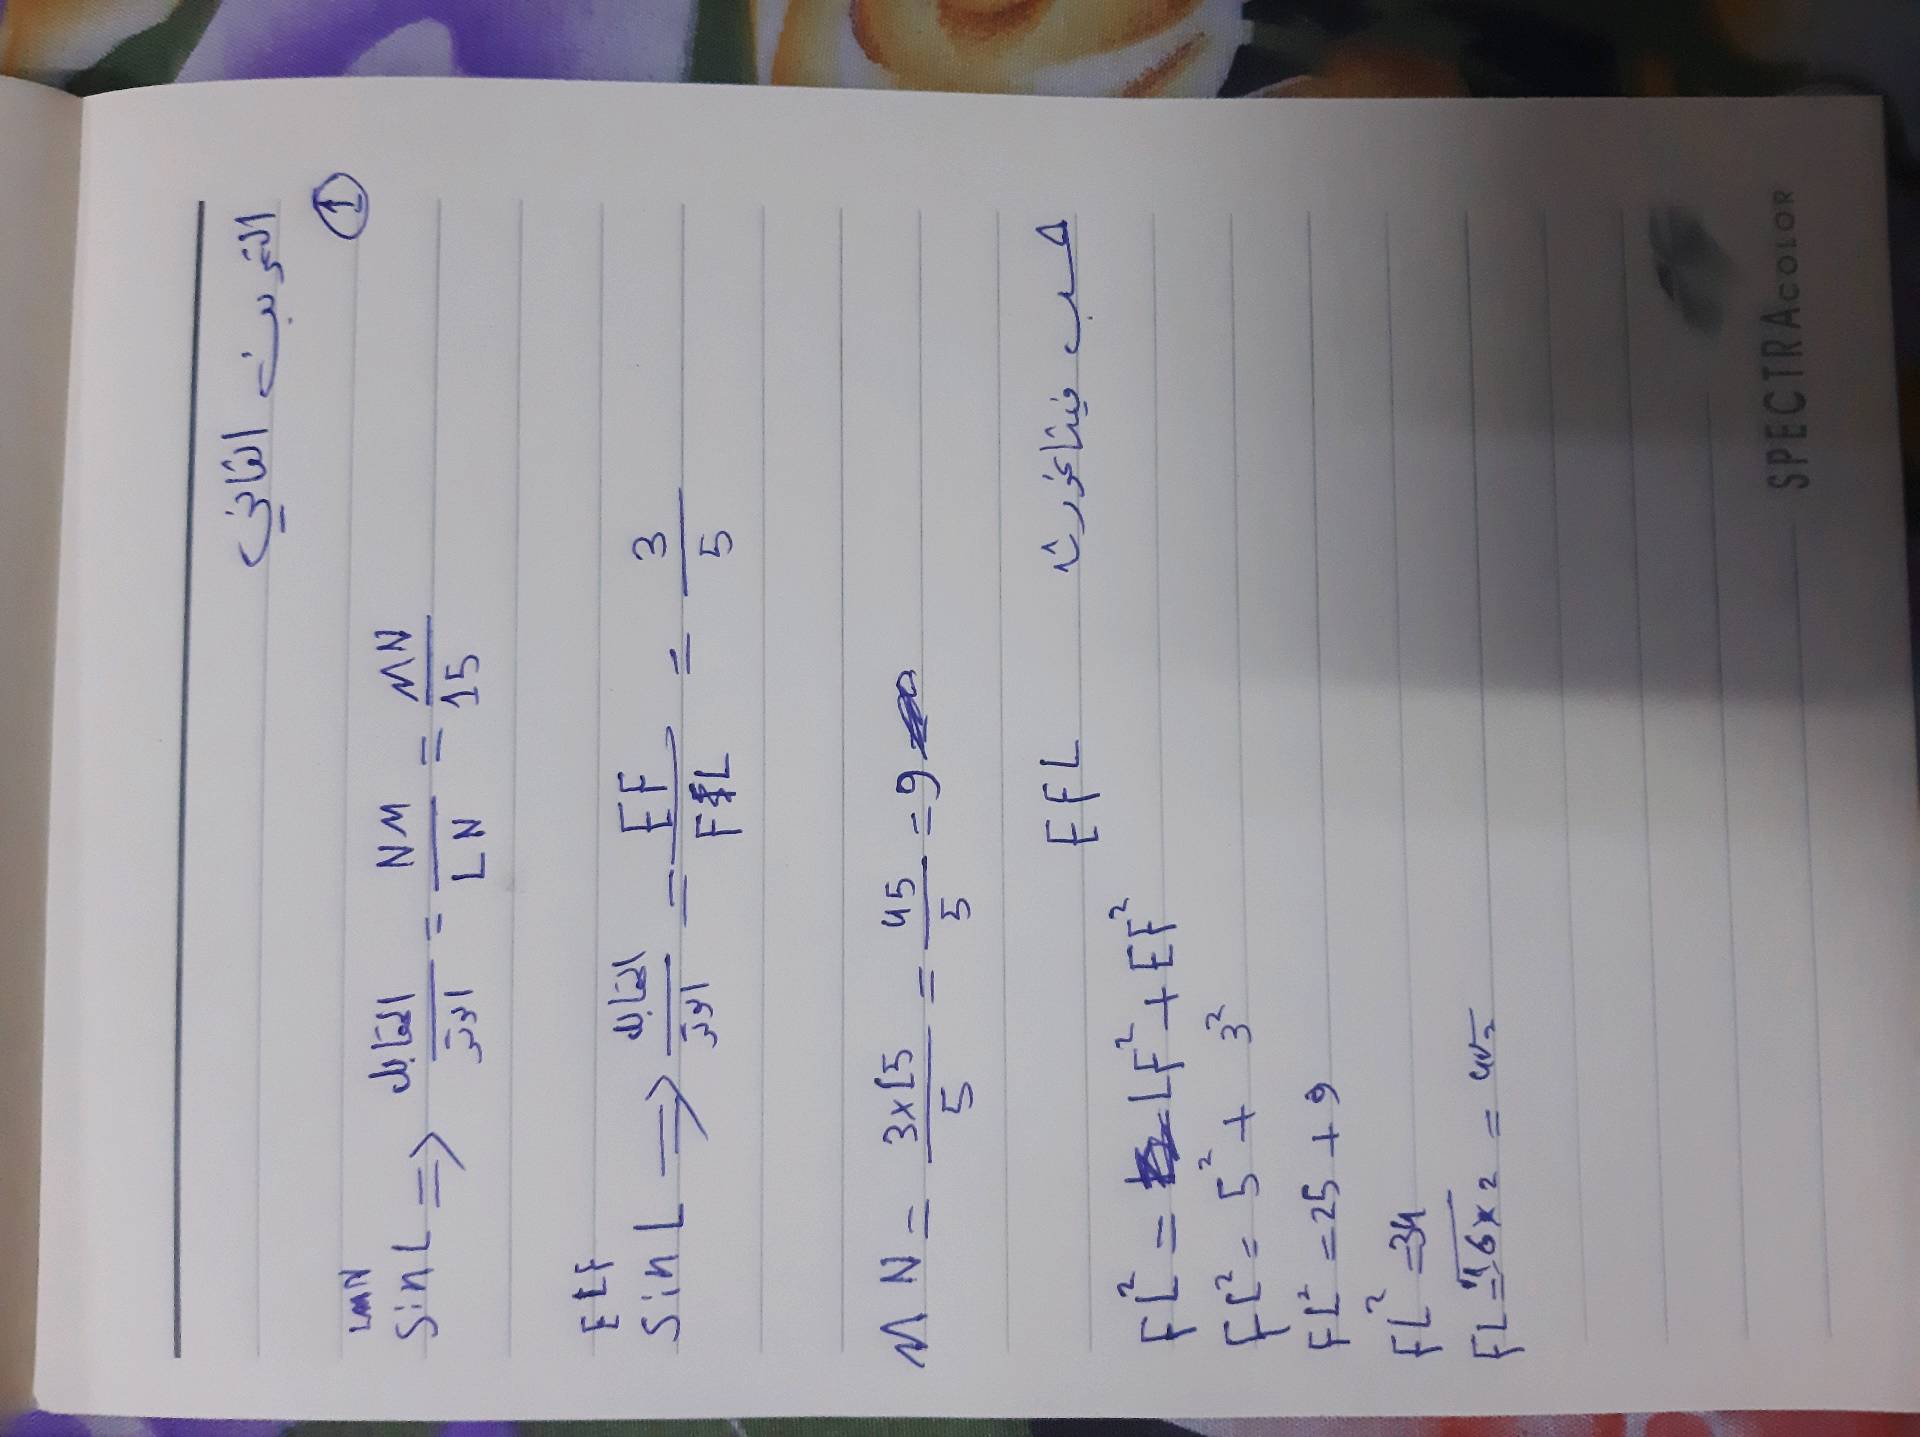 التمرين الثاني
①
LMN
Sin L ⇒ المقابل/الوتر = NM/LN = MN/15
ELF
Sin L ⇒ المقابل/الوتر = EF/FL = 3/5
MN = 3×15/5 = 45/5 = 9
حسب فيثاغورث EFL
FL² = LF² + EF²
FL² = 5² + 3²
FL² = 25 + 9
FL² = 34
FL = √16×2 = 4√2
SPECTRACOLOR